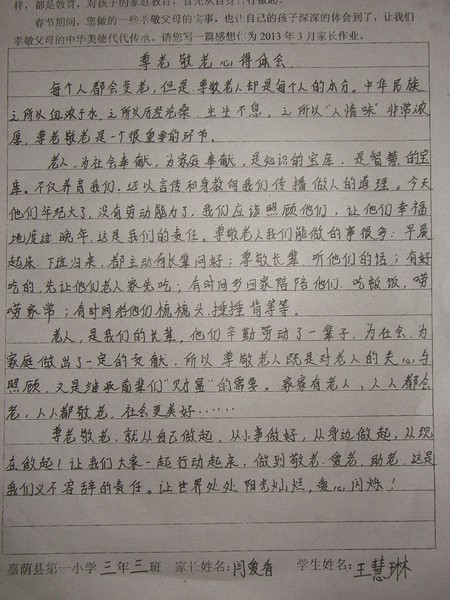 样，都是教育，对孩子的家庭教育，首先从自身
春节期间，您做的一些孝敬父母的实事，也让自己的孩子深深的体会到了，让我们
孝敬父母的中华美德代代传承。请您写一篇感想作为 2013 年 3 月家长作业。
尊老敬老心得体会
每个人都会变老，但是尊敬老人却是每个人的本分。中华民族
之所以血浓于水，之所以历尽沧桑、生生不息，之所以"人情味"非常浓
厚，尊老敬老是一个很重要的环节。
老人，为社会奉献，为家庭奉献，是知识的宝库，是智慧的宝
库。不仅养育我们，还以言传和身教向我们传播做人的道理。今天
他们年纪大了，没有劳动能力了，我们应该照顾他们，让他们幸福
地度过晚年，这是我们的责任。尊敬老人我们能做的事很多：早晨
起床、下班归来，都主动向长辈问好；尊敬长辈，听他们的话；有好
吃的，先让他们老人家先吃；有时间多回家陪陪他们，吃吃饭，唠
唠家常；有时间给他们梳梳头、捶捶背等等。
老人，是我们的长辈，他们辛勤劳动了一辈子，为社会、为
家庭做出了一定的贡献，所以尊敬老人既是对老人的关心与
照顾，又是继承前辈们"财富"的需要。家家有老人，人人都会
老，人人都敬老，社会更美好……
尊老敬老，就从自己做起，从小事做好，从身边做起，从现
在做起！让我们大家一起行动起来，做到敬老、爱老、助老，这是
我们义不容辞的责任。让世界处处阳光灿烂，爱心闪烁！
嘉荫县第一小学 三年三班 家长姓名：闫爱香 学生姓名：王慧琳